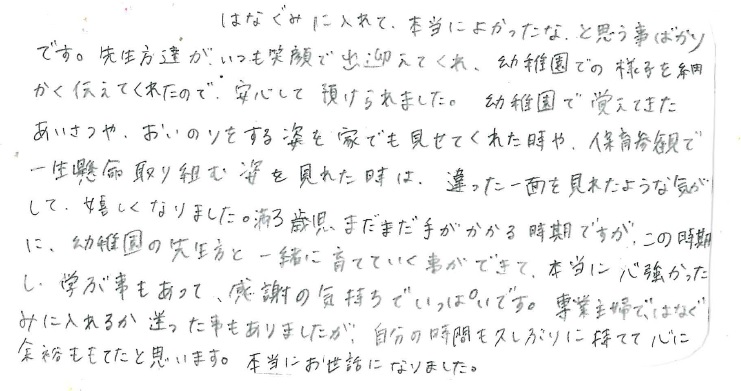 はなぐみに入れて、本当によかったな、と思う事ばかり
です。先生方達が、いつも笑顔で出迎えてくれ、幼稚園での様子を細
かく伝えてくれたので、安心して預けられました。幼稚園で覚えてきた
あいさつや、おいのりをする姿を家でも見せてくれた時や、保育参観で
一生懸命取り組む姿を見れた時は、違った一面を見れたような気が
して、嬉しくなりました。満3歳児、まだまだ手がかかる時期ですが、この時期
に、幼稚園の先生方と一緒に育てていく事ができて、本当に心強かった
し、学ぶ事もあって、感謝の気持ちでいっぱいです。専業主婦で、はなぐ
みに入れるか迷った事もありましたが、自分の時間も久しぶりに持てて心に
余裕ももてたと思います。本当にお世話になりました。